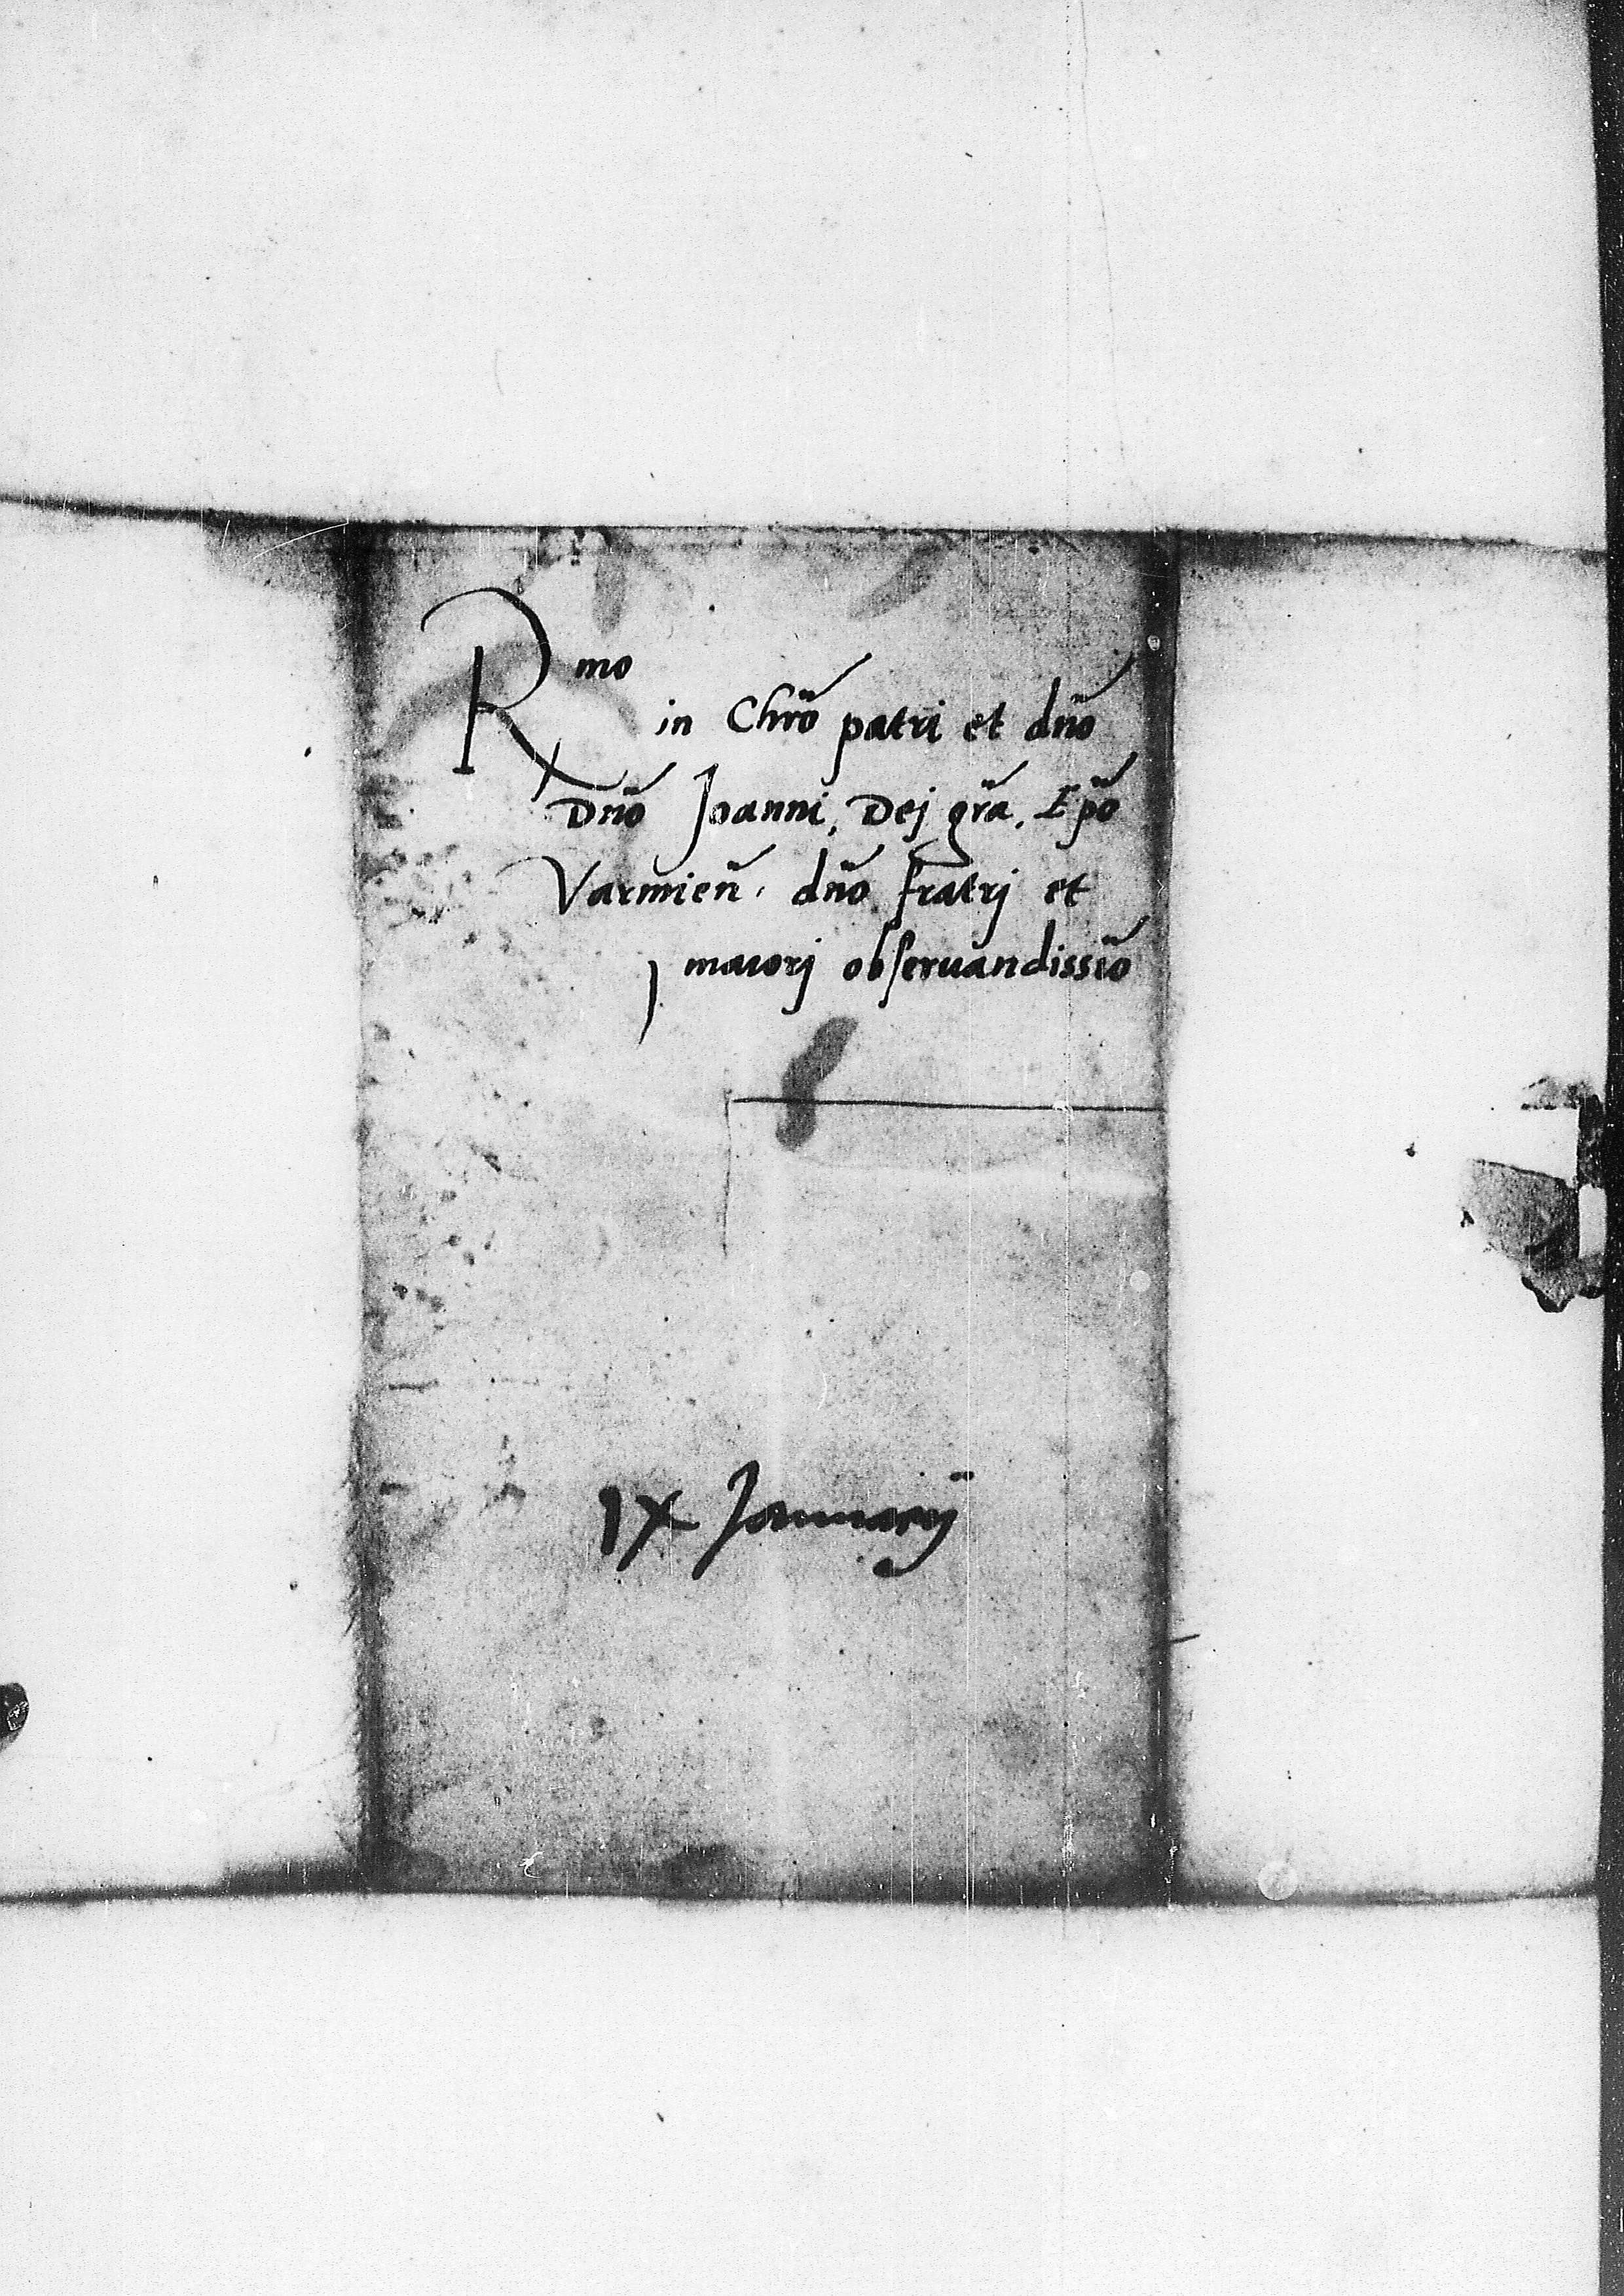 Rmo
in Chrō patri et dn̄o
Dn̄o Joanni, Dej gr̄a. Ep̄o
Varmien̄. dn̄o fratrj et
maiorj obseruandissīo
IX Januarij